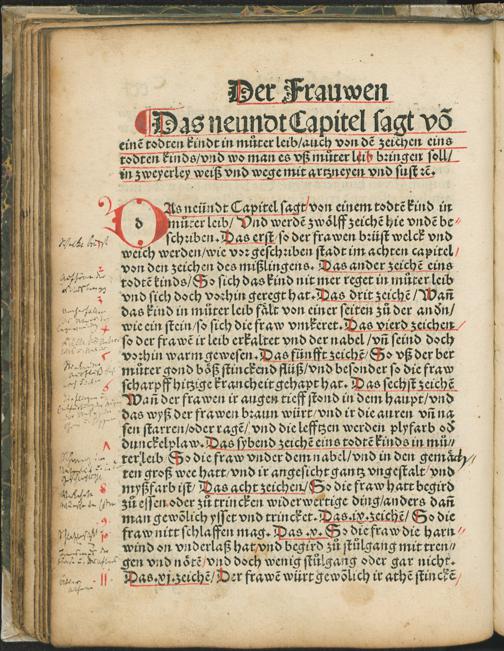 Der Frauwen
Das neundt Capitel sagt võ
einẽ todten kindt in můter leib/auch von dẽ zeichen eins
todten kinds/vnd wo man es vß můter leib bringen soll/
in zweyerley weiß vnd wege mit artzneyen vnd sust ꝛc.
DAs neündt Capitel sagt/von einem todtẽ kind in
můter leib/ Vnd werdẽ zwölff zeichẽ hie vndẽ be〃
schriben. Das erst/so der frawen brüst welck vnd
weich werden/wie vor geschriben stadt im achten capitel/
von den zeichen des mißlingens. Das ander zeichẽ eins
todtẽ kinds/So sich das kind nit mer reget in můter leib
vnd sich doch vorhin geregt hat. Das drit zeichẽ/Wañ
das kind in můter leib falt von einer seiten zů der andn/
wie ein stein/so sich die fraw vmkeret. Das vierd zeichen/
so der frawẽ ir leib erkaltet vnd der nabel/vñ seind doch
vorhin warm gewesen. Das fünfft zeichẽ/So vß der ber
můter gond böß stinckend flüß/vnd besonder so die fraw
scharpff hitzige kranckeit gehapt hat. Das sechst zeichẽ
Wañ der frawen ir augen tieff stond in dem haupt/vnd
das wyß der frawen braun würt/vnd ir die auren vñ na
sen starren/oder ragẽ/vnd die lefftzen werden plyfarb od
dunckelplaw. Das sybend zeichẽ eins todtẽ kinds in mů〃
ter leib. So die fraw vnder dem nabel/vnd in den gemäch
ten groß wee hatt/vnd ir angesicht gantz vngestalt/vnd
myßfarb ist/ Das acht zeichen/So die fraw hatt begird
zů essen oder zů trincken widerwertige ding/anders dañ
man gewölich ysset vnd trincket. Das .ix. zeichẽ/ So die
fraw nitt schlaffen mag. Das .x. So die fraw die harn〃
wind on vnderlaß hat/vnd begird zů stülgang mit tren〃
gen vnd nötẽ/vnd doch wenig stülgang oder gar nicht.
Das .xj. zeichẽ/ Der frawẽ würt gewölich ir athẽ stinckẽ